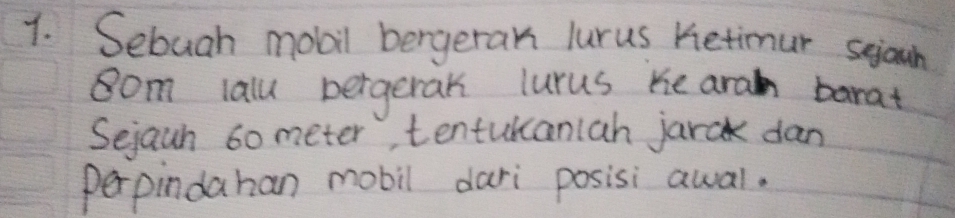 1. Sebuah mobil bergerak lurus ketimur sejauh
80m lalu bergerak lurus ke arah barat
Sejauh 60 meter, tentukanlah jarak dan
perpindahan mobil dari posisi awal.